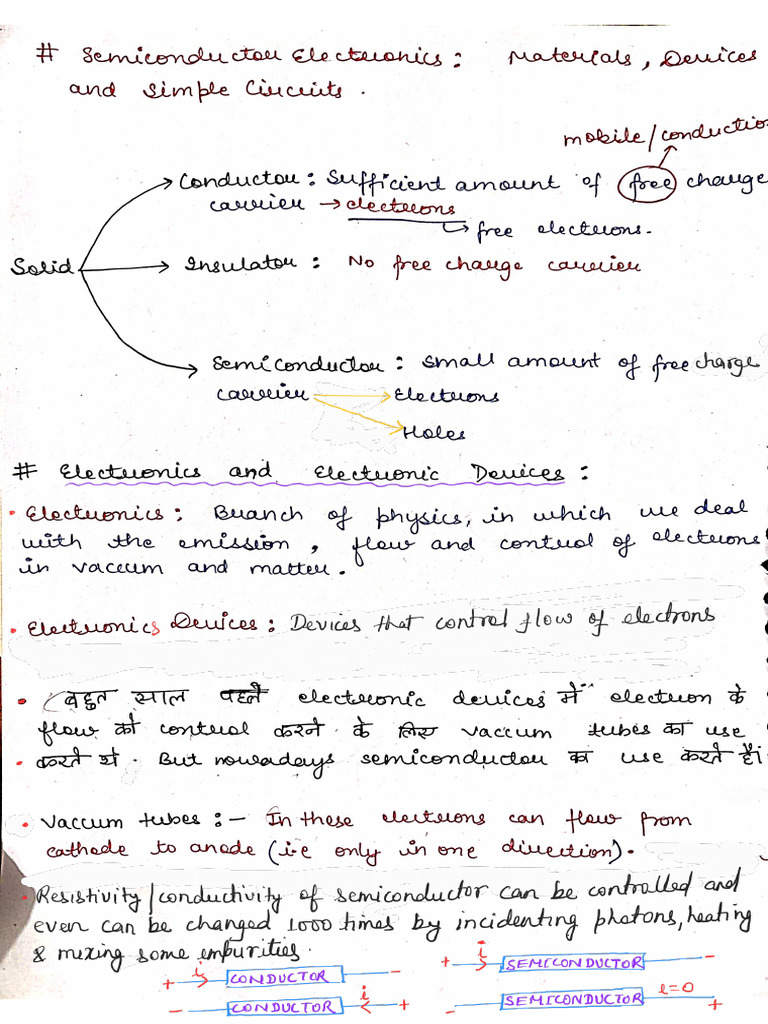 # Semiconductor Electronics: Materials, Devices
and Simple Circuits.
mobile/conduction
Conductor: Sufficient amount of free charge
carrier → electrons
↳ free electrons.
Solid
Insulator: No free charge carrier
Semiconductor: small amount of free charge
carrier
Electrons
Holes
# Electronics and Electronic Devices:
• Electronics: Branch of physics, in which we deal
with the emission, flow and control of electrons
in vaccum and matter.
• Electronics Devices: Devices that control flow of electrons
• (बहुत साल पहले electronic devices में electron के
flow को control करने के लिए vaccum tubes का use
• करते थे. But nowadays semiconductor का use करते हैं।
• Vaccum tubes:- In these electrons can flow from
cathode to anode (i.e only in one direction).
• Resistivity/conductivity of semiconductor can be controlled and
even can be changed 1000 times by incidenting photons, heating
& mixing some impurities.
+ i CONDUCTOR -
+ i SEMICONDUCTOR -
- CONDUCTOR i +
- SEMICONDUCTOR i=0 +